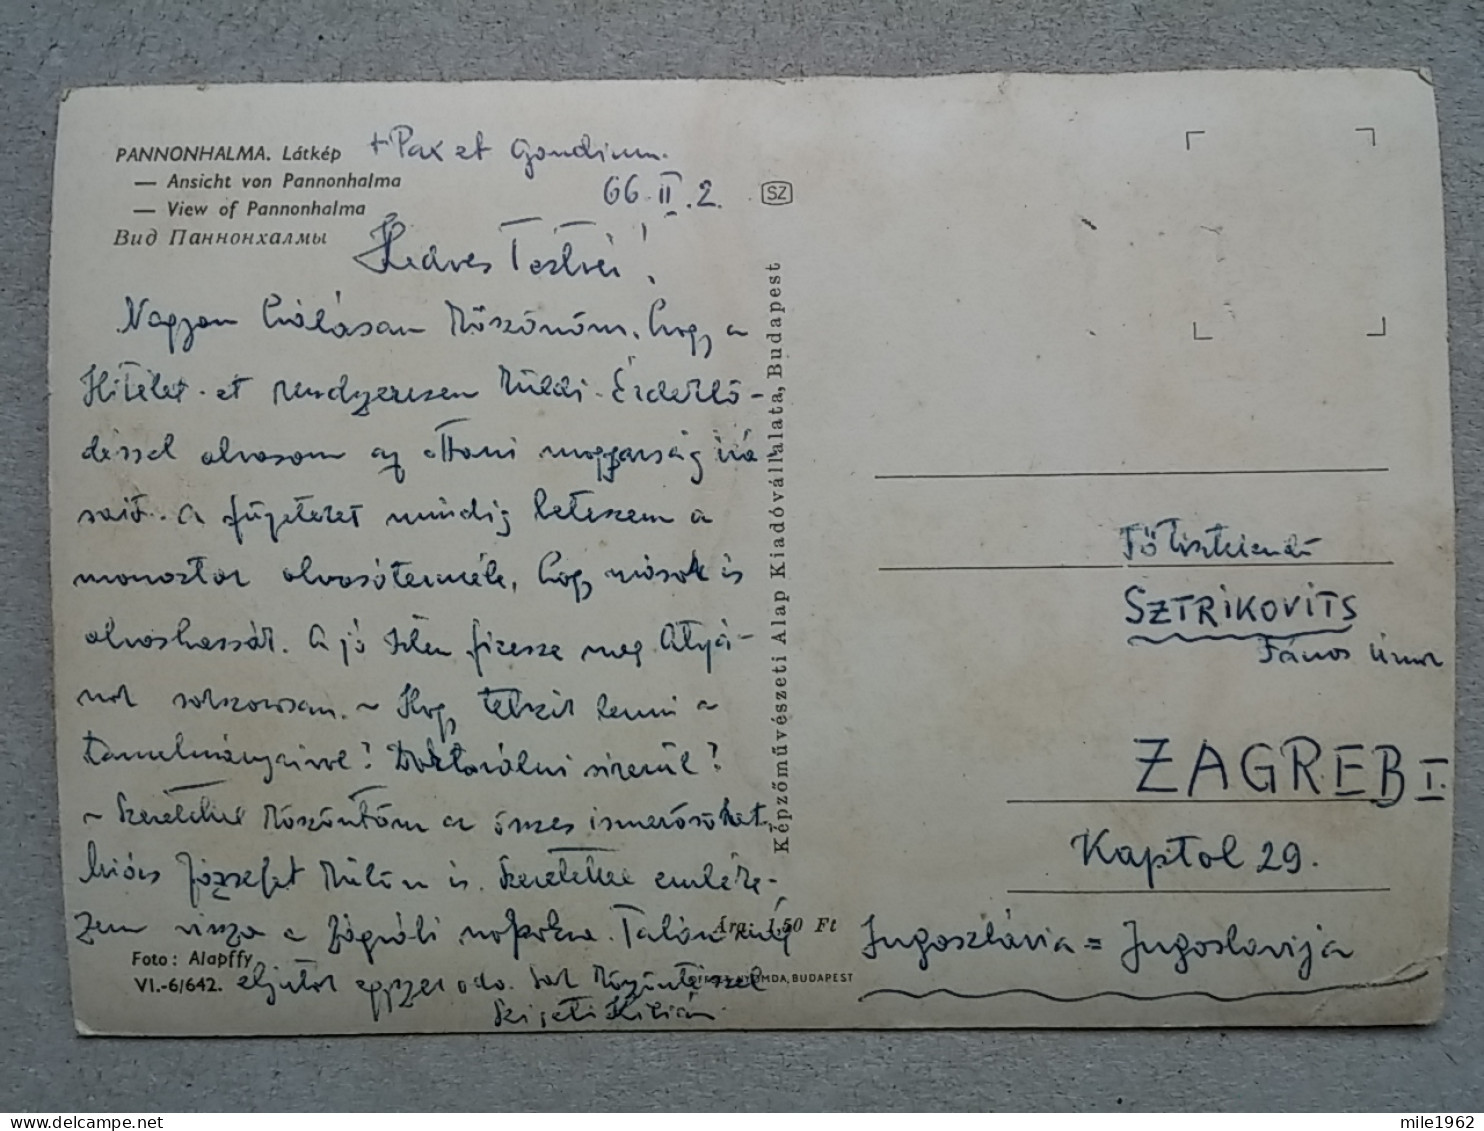 PANNONHALMA. Látkép
— Ansicht von Pannonhalma
— View of Pannonhalma
Вид Паннонхалмы
+ Pax et Gaudium.
66. II. 2.
Kedves Testvér!
Nagyon hálásan köszönöm, hogy a
Hitélet-et rendszeresen küldi. Érdeklő-
déssel olvasom az ottani magyarság írá-
sait. A füzeteket mindig leteszem a
monostor olvasótermébe, hogy mások is
olvashassák. A jó Isten fizesse meg Atyá-
nak sokszorosan. ~ Hogy tetszik lenni a
tanulmányaival? Doktorálni sikerül?
~ Szeretettel köszöntöm az összes ismerősöket,
József külön is. Szeretettel emléke-
zem vissza a zágrábi napokra. Talán még
eljutok egyszer oda. Sok köszöntéssel
Szigeti Kilián
Foto: Alapffy
VI.-6/642.
Ára: 1,50 Ft
NYOMDA, BUDAPEST
SZ
Képzőművészeti Alap Kiadóvállalata, Budapest
Főtisztelendő
SZTRIKOVITS
János úrnak
ZAGREB I.
Kaptol 29.
Jugoszlávia = Jugoslavija
mile1962